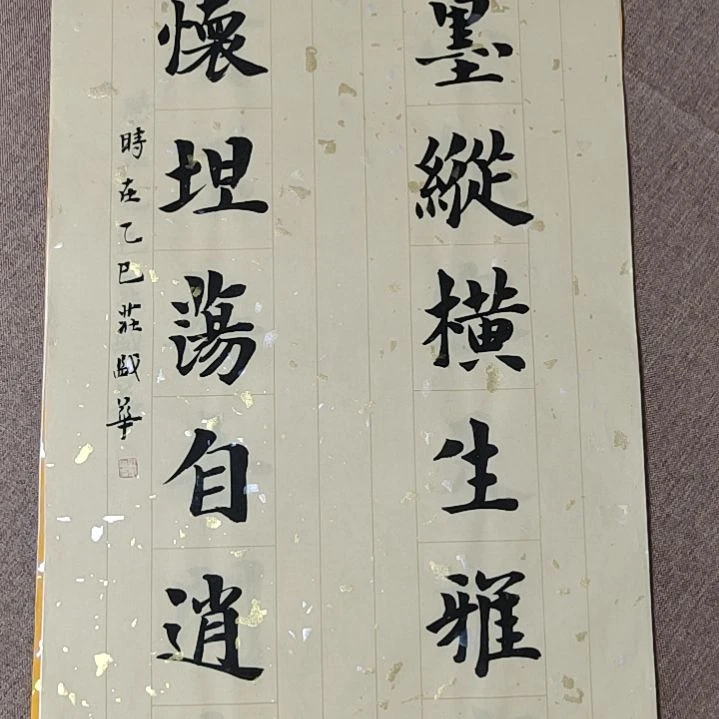 墨縱橫生雅
懷坦蕩自逍
時在乙巳莊戯華